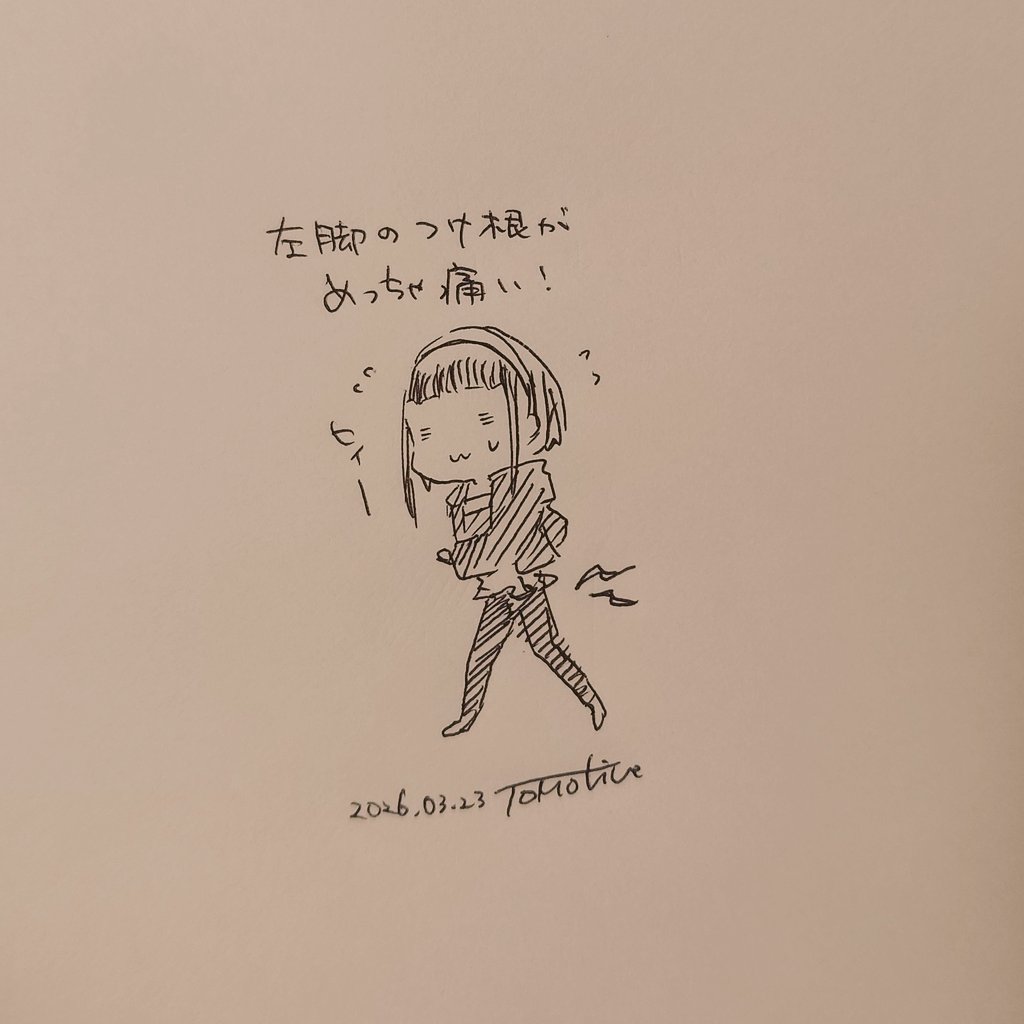 左脚のつけ根が
めっちゃ痛い!
ヒィー
2026.03.23 TOMOtive